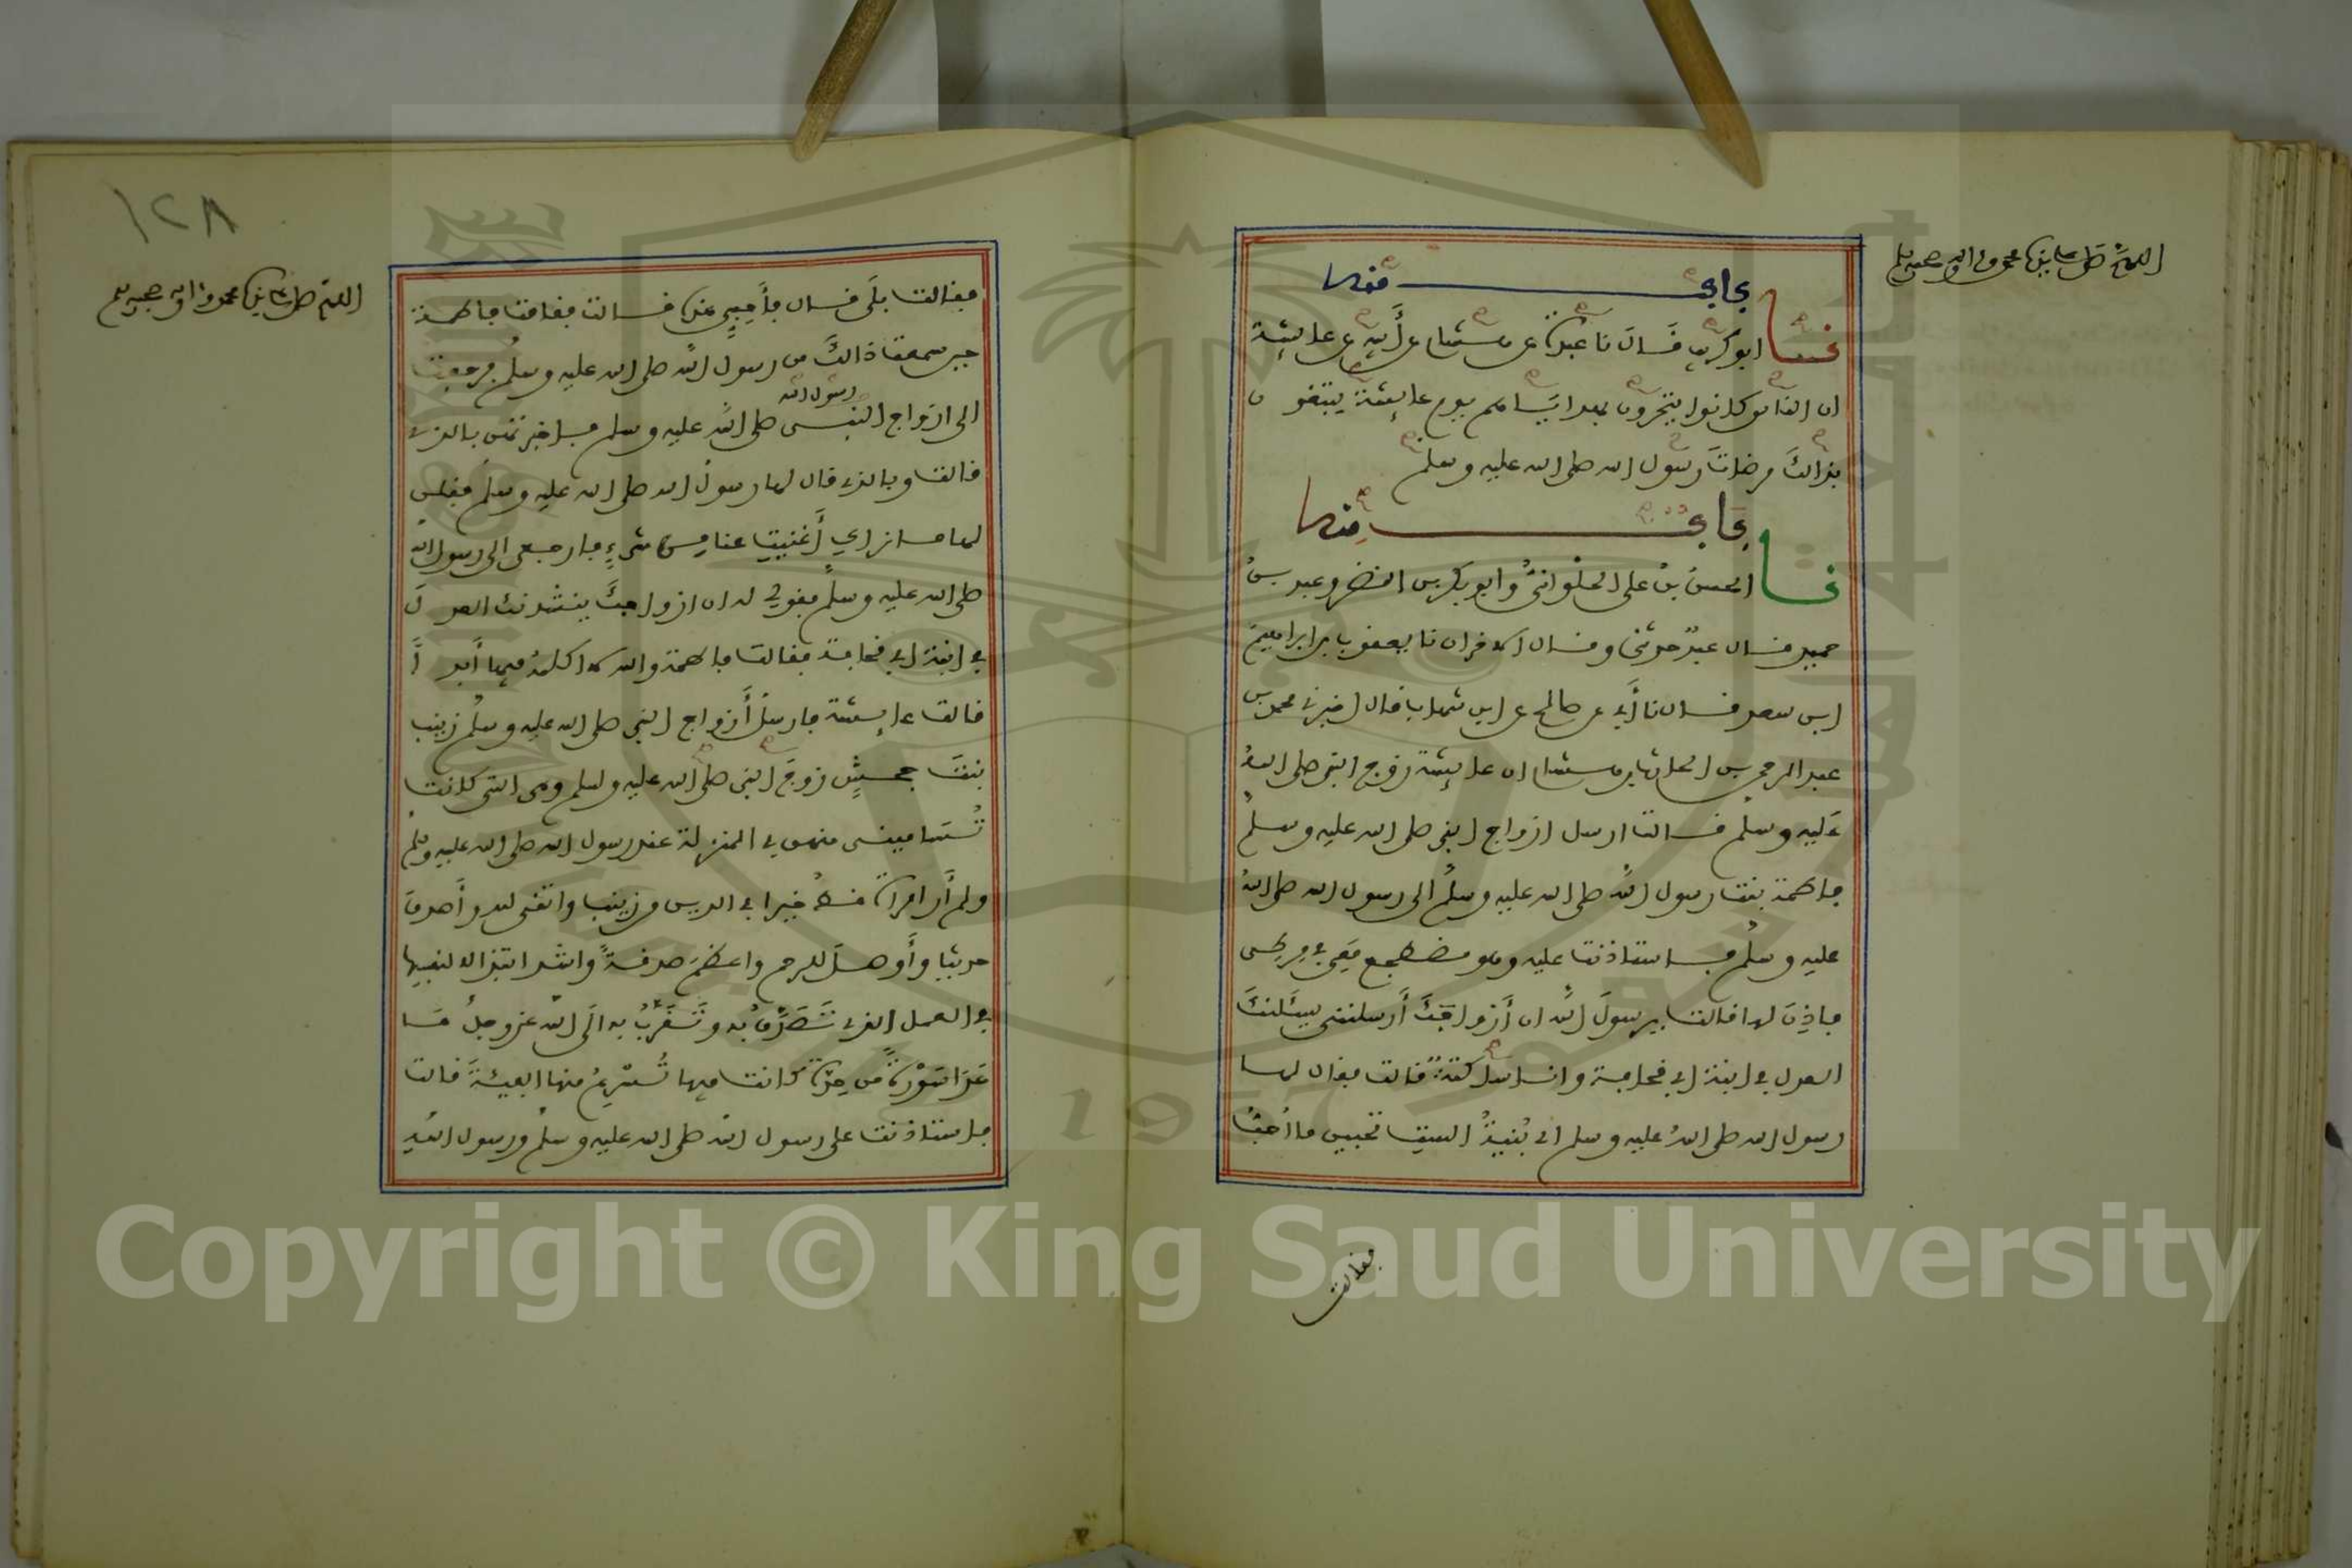 اللهم صل على سيدنا محمد وءاله وصحبه وسلم
باب منه
نا ابو كريب قال نا عبدة عن هشام عن أبيه عن عايشة
ان الناس كانوا يتحرون بهداياهم يوم عايشة يبتغون
بذالك مرضات رسول الله صلى الله عليه وسلم
باب منه
نا الحسن بن على الحلواني وابو بكر بن النضر وعبد بن
حميد قال عبد حدثني وقال الاخران نا يعقوب بن ابراهيم
ابن سعد قال نا أبي عن صالح عن ابن شهاب قال اخبرني محمد بن
عبد الرحمن بن الحارث بن هشام ان عايشة زوج النبي صلى الله
عليه وسلم قالت ارسل ازواج النبي صلى الله عليه وسلم
فاطمة بنت رسول الله صلى الله عليه وسلم الى رسول الله صلى الله
عليه وسلم فاستاذنت عليه وهو مضطجع معي في مرطي
فاذن لها فقالت يرسول الله ان أزواجك أرسلنني يسئلنك
العدل في ابنة ابي قحافة وانا ساكتة قالت فقال لها
رسول الله صلى الله عليه وسلم اي بنية الست تحبين ما احب
فقالت
١٢٨
اللهم صل على سيدنا محمد وءاله وصحبه وسلم
فقالت بلى قال فأحبي هذه قالت فقامت فاطمة
حين سمعت ذالك من رسول الله صلى الله عليه وسلم فرجعت
رسول الله
الى ازواج النبي صلى الله عليه وسلم فاخبرتهن بالذي
قالت وبالذي قال لها رسول الله صلى الله عليه وسلم فقلن
لها ما نراي أغنيت عنا من شيء فارجعي الى رسول الله
صلى الله عليه وسلم فقولي له ان ازواجك ينشدنك العدل
في ابنة ابي قحافة فقالت فاطمة والله لا اكلمه فيها أبدا
قالت عايشة فارسل أزواج النبي صلى الله عليه وسلم زينب
بنت جحش زوج النبي صلى الله عليه وسلم وهي التي كانت
تساميني منهن في المنزلة عند رسول الله صلى الله عليه وسلم
ولم أر امراة قط خيرا في الدين من زينب واتقى لله وأصدق
حديثا وأوصل للرحم واعظم صدقة واشد ابتذالا لنفسها
في العمل الذي تصدق به وتقرب به الى الله عز وجل ما
عدا سورة من حدة كانت فيها تسرع منها الفيئة قالت
فاستاذنت على رسول الله صلى الله عليه وسلم ورسول الله
Copyright © King Saud University
1957